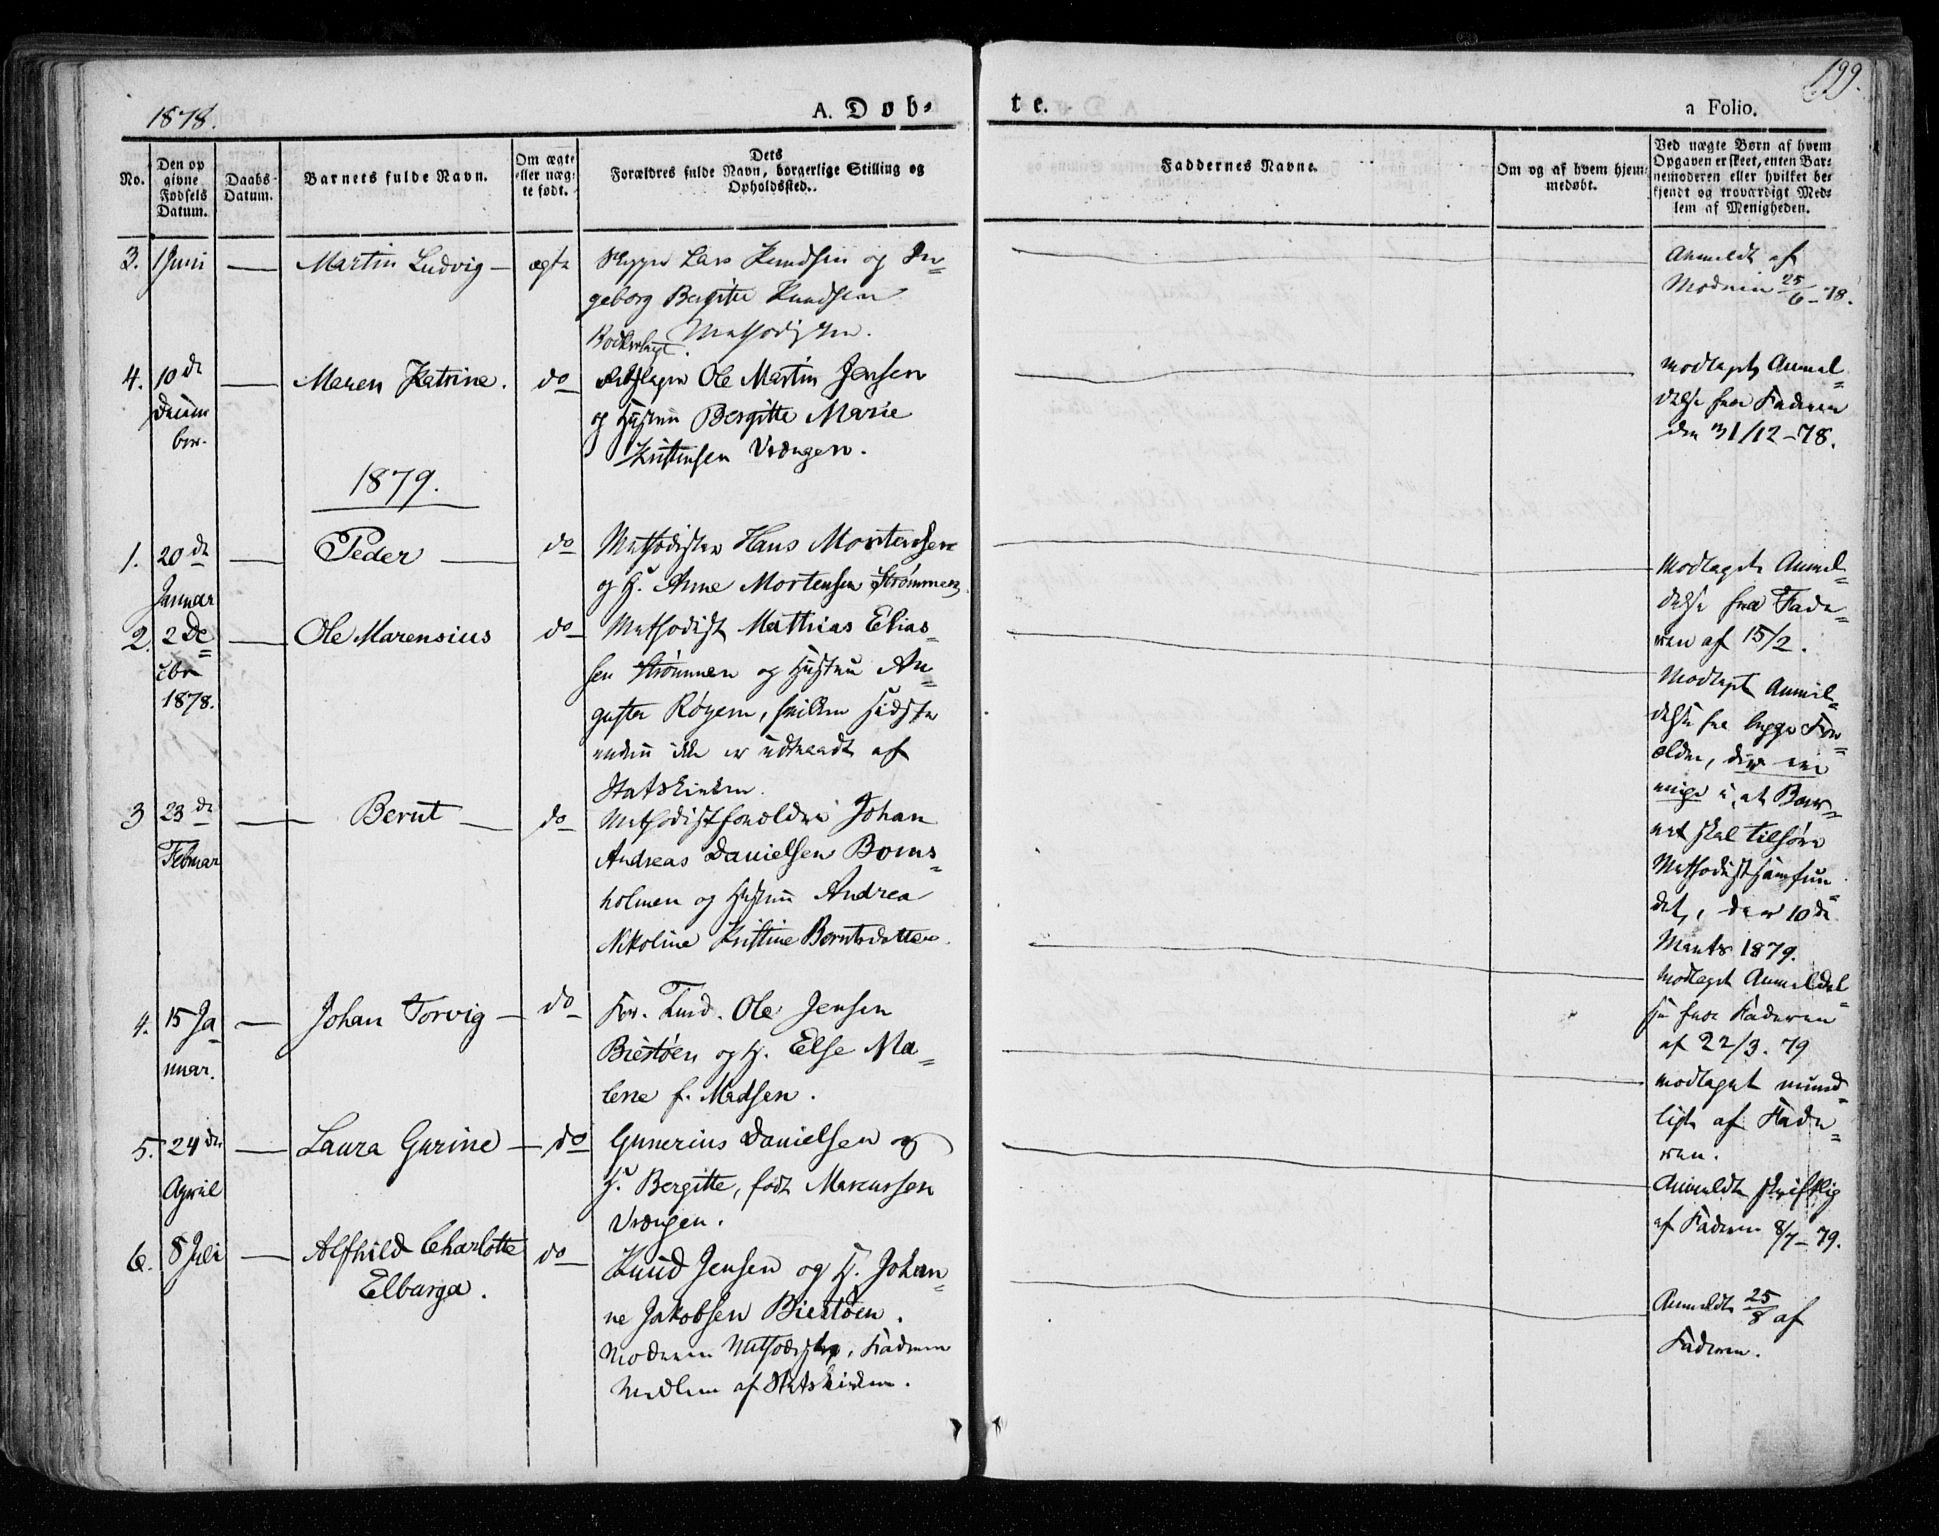 1878.
A. Døb-
te.
199.
a Folio.
No.
Den op
givne
Fødsels
Datum.
Daabs-
Datum.
Barnets fulde Navn.
Om ægte
eller uæg-
te født.
Dets
Forældres fulde Navn, borgerlige Stilling og
Opholdssted.
Faddernes Navne.
Om og af hvem hjem-
medøbt.
Ved uægte Børn af hvem
Opgaven er skeet, enten Bar-
nemoderen eller hvilket be-
kjendt og troværdigt Med-
lem af Menigheden.
3. 1 Juni — Martin Ludvig — ægte
Lars Knudsen og In-
geborg Bergitte Knudsen
Methodister.
Anmeldt af
Moderen 25/6-78.
4. 10de
Decem
ber.
— Maren Katrine. do
Ole Martin Jensen
og Hustru Bergitte Marie
Kristensen Vrængen.
modtaget Anmel-
delse fra Faderen
den 31/12-78.
1879.
1. 20de
Januar
— Peder — do
Methodister Hans Mortensen
og H. Anne Mortensen Strømmen
Modtaget Anmel-
delse fra Fade-
ren af 15/2.
2. 2 De-
cbr
1878.
— Ole Marensius do
Methodist Mathias Elias-
sen Strømmen og Hustru Au-
gusta Røyem, hvilken sidste
endnu ikke er udtraadt af
Statskirken.
Modtaget Anmel-
delse fra begge For-
ældre, der ere
enige i, at Bar-
net skal tilhøre
Methodistsamfun-
det, den 10de
Marts 1879.
3 23de
Februar
— Berut — do
Methodistforældre Johan
Andreas Danielsen Borns-
holmen og Hustru Andrea
Nikoline Kristine Berntsdatter.
modtaget Anmeldel-
se fra Faderen
af 22/3. 79
4. 15 Ja-
nuar.
— Johan Torvig — do
Ole Jensen
Biestøen og H. Else Ma-
lene f. Madsen.
modtaget mund-
ligt af Fade-
ren.
5. 24de
April
— Laura Gurine — do
Gunerius Danielsen og
H. Bergitte, født Marcussen
Vrængen.
Anmeldt skriftlig
af Faderen 8/7-79.
6. 8 Juli — Alfhild Charlotte
Elbarga.
do
Knud Jensen og H. Johan-
ne Jakobsen Biestøen.
Moderen Methodist, Faderen
Medlem af Statskirken.
Anmeldt 25/8 af
Faderen.